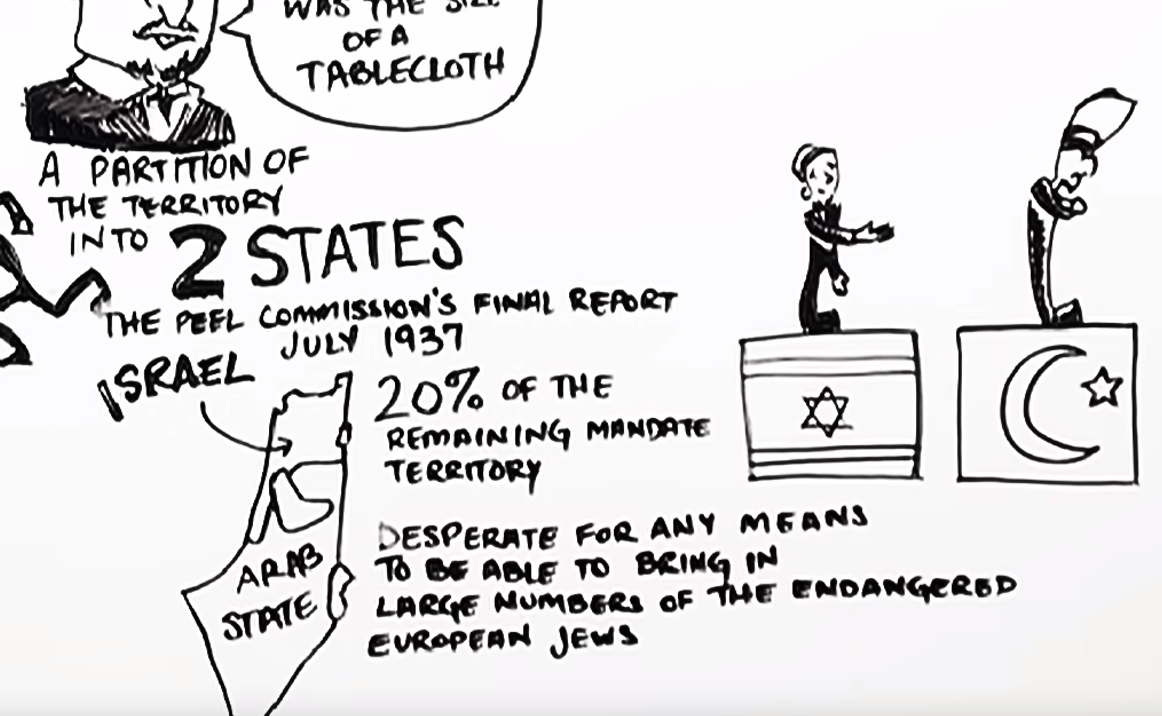 WAS THE SIZE
OF A
TABLECLOTH
A PARTITION OF
THE TERRITORY
INTO 2 STATES
THE PEEL COMMISSION'S FINAL REPORT
JULY 1937
ISRAEL
20% OF THE
REMAINING MANDATE
TERRITORY
ARAB
STATE
DESPERATE FOR ANY MEANS
TO BE ABLE TO BRING IN
LARGE NUMBERS OF THE ENDANGERED
EUROPEAN JEWS